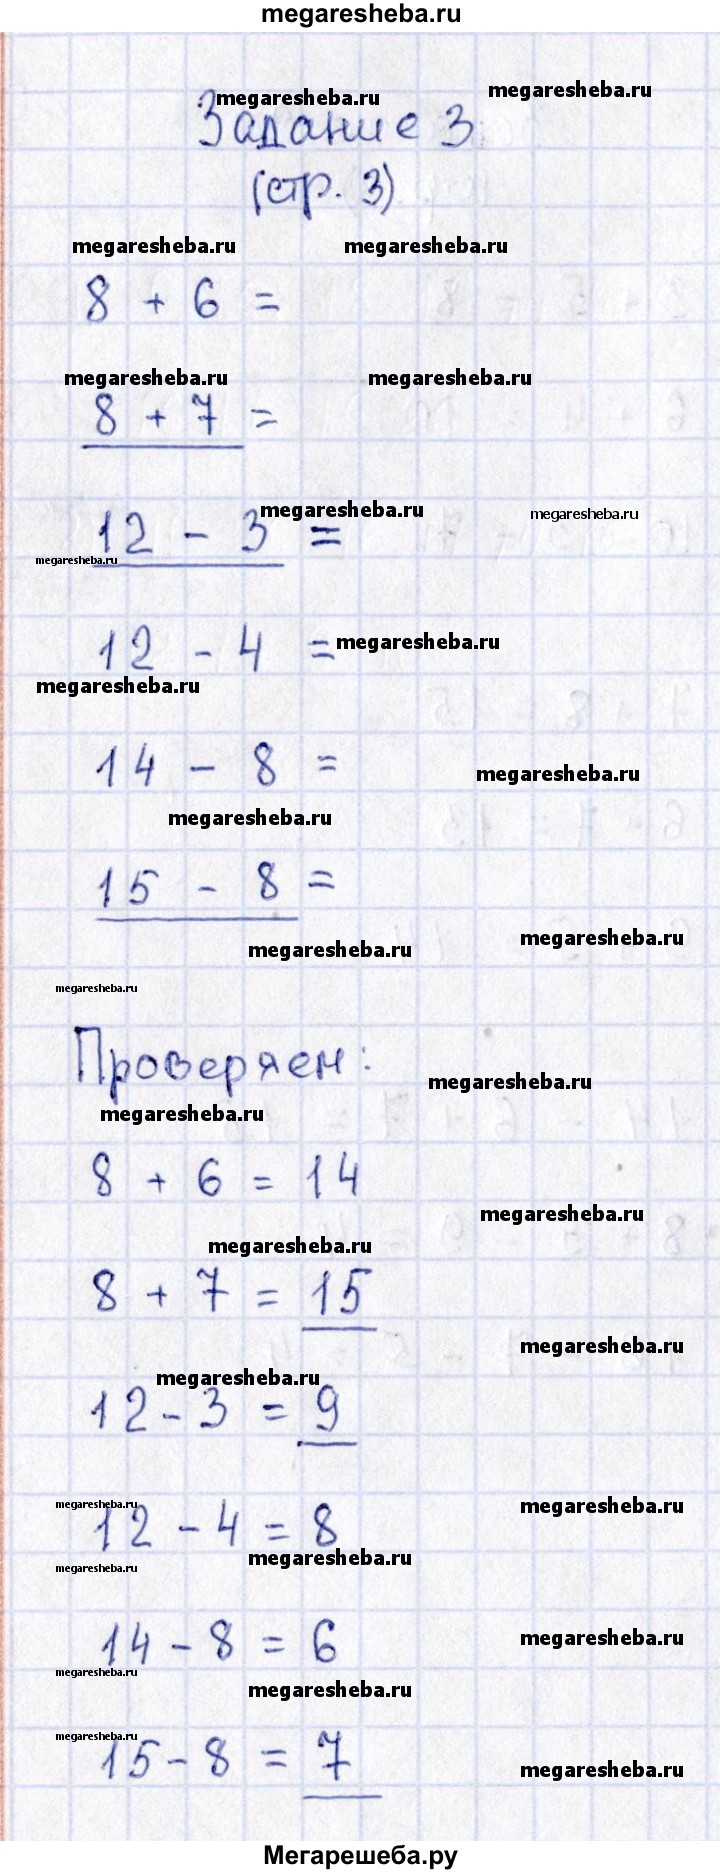 megaresheba.ru
megaresheba.ru megaresheba.ru
Задание 3
(стр. 3)
megaresheba.ru megaresheba.ru
8 + 6 =
megaresheba.ru megaresheba.ru
8 + 7 =
megaresheba.ru megaresheba.ru
12 - 3 =
megaresheba.ru
12 - 4 = megaresheba.ru
megaresheba.ru
14 - 8 = megaresheba.ru
megaresheba.ru
15 - 8 =
megaresheba.ru megaresheba.ru
megaresheba.ru
Проверяем:
megaresheba.ru
megaresheba.ru
8 + 6 = 14
megaresheba.ru
megaresheba.ru
8 + 7 = 15
megaresheba.ru
megaresheba.ru
12 - 3 = 9
megaresheba.ru megaresheba.ru
12 - 4 = 8
megaresheba.ru megaresheba.ru
14 - 8 = 6 megaresheba.ru
megaresheba.ru megaresheba.ru
megaresheba.ru
15 - 8 = 7 megaresheba.ru
Мегарешеба.ру